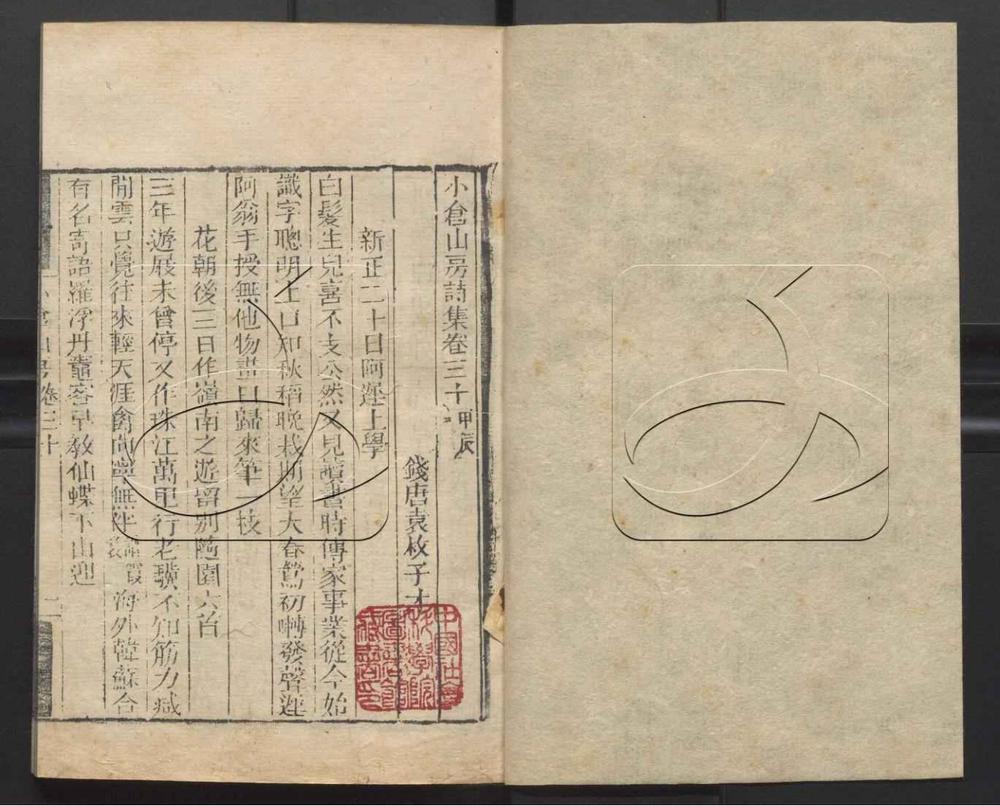 小倉山房詩集卷三十 甲辰
錢唐袁枚子才
新正二十日阿遲上學
白髮生兒喜不支公然又見讀書時傳家事業從今始
識字聰明上口知秋稻晚栽期望大春鶯初囀發聲遲
阿翁手授無他物書口歸來筆一枝
花朝後三日作嶺南之遊留別隨園六首
三年遊屐未曾停又作珠江萬里行老驥不知筋力減
閒雲只覺往來輕天涯禽尚無伴 海外韓蘇合
有名寄語羅浮丹竈客早教仙蝶下山迎
小倉山房卷三十 一
中國社會科學院圖書館藏書印